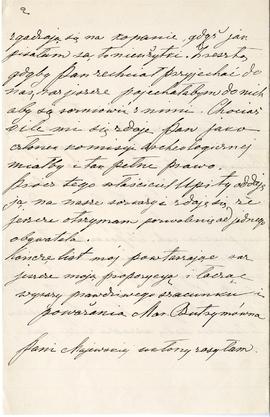 2
zgadzają się na kopanie, gdyż jak
pisałam są to nieużytki. Zresztą,
gdyby Pan zechciał przyjechać do
nas, naprzód pojechałabym do nich
aby się rozmówić z nimi. Chociaż
o ile mi się zdaje, Pan jako
członek komisyi Archeologicznej
miałby i tak pełne prawo.
Prócz tego właściciel Upity oddaje
ją na nasze rozkazy i zdaje się, że
jeszcze otrzymam pozwolenie od jednego
obywatela.
Kończę list mój powtarzając raz
jeszcze moją propozycję i łączę
wyrazy prawdziwego szacunku i
poważania Mar. Butrymówna
Pani Majewskiej ukłony zasyłam.